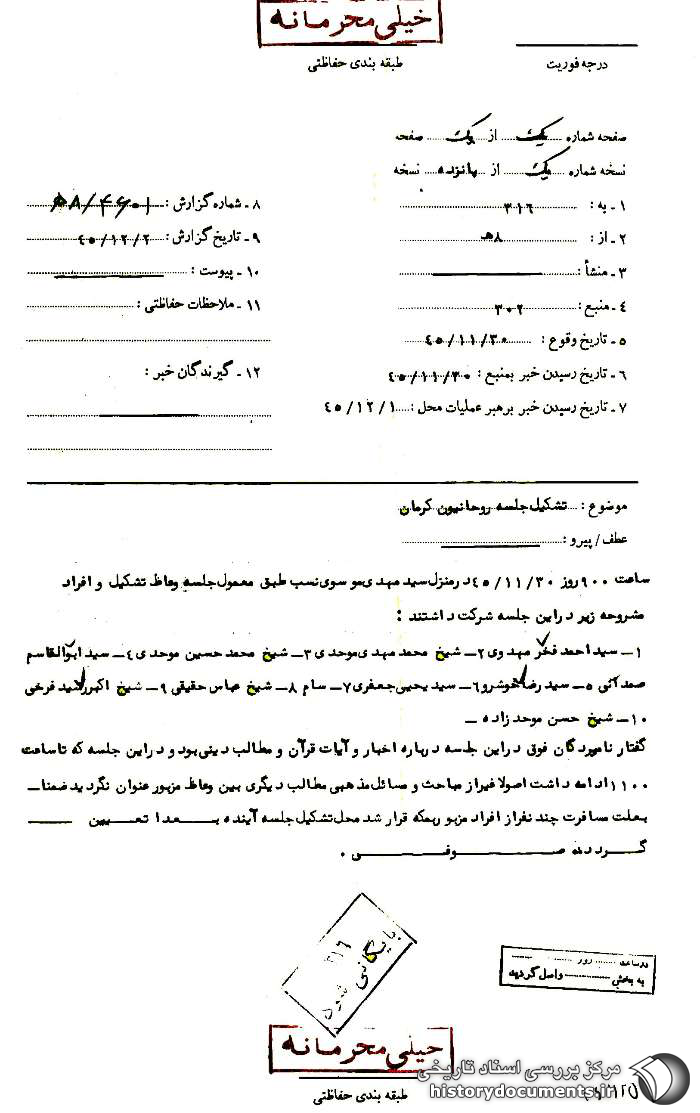 خیلی محرمانه
درجه فوریت
طبقه بندی حفاظتی
صفحه شماره یک از یک صفحه
نسخه شماره یک از پانزده نسخه
۱ - به : ۳۱۶
۲ - از : ۸ هـ
۳ - منشأ :
۴ - منبع : ۳۰۲
۵ - تاریخ وقوع : ۴۵/۱۱/۳۰
۶ - تاریخ رسیدن خبر بمنبع : ۴۵/۱۱/۳۰
۷ - تاریخ رسیدن خبر برهبر عملیات محل : ۴۵/۱۲/۱
۸ - شماره گزارش : ۵۸/۴۶۰۱
۹ - تاریخ گزارش : ۴۵/۱۲/۲
۱۰ - پیوست :
۱۱ - ملاحظات حفاظتی :
۱۲ - گیرندگان خبر :
موضوع : تشکیل جلسه روحانیون کرمان
عطف / پیرو :
ساعت ۹۰۰ روز ۴۵/۱۱/۳۰ درمنزل سید مهدی موسوی نسب طبق معمول جلسه وعاظ تشکیل و افراد
مشروحه زیر دراین جلسه شرکت داشتند :
۱ـ سید احمد فخر مهدوی ۲ـ شیخ محمد مهدی موحدی ۳ـ شیخ محمد حسین موحدی ۴ـ سید ابوالقاسم
صمدآئی ۵ـ سید رضا خوشرو ۶ـ سید یحیی جعفری ۷ـ سام ۸ـ شیخ عباس حقیقی ۹ـ شیخ اکبر رشید فرخی
۱۰ـ شیخ حسن موحد زاده ـ
گفتار نامبردگان فوق دراین جلسه درباره اخبار و آیات قرآن و مطالب دینی بود و دراین جلسه که تا ساعت
۱۱۰۰ ادامه داشت اصولا غیراز مباحث و مسائل مذهبی مطالب دیگری بین وعاظ مزبور عنوان نگردید ضمناـ
بعلت مسافرت چند نفراز افراد مزبور ربمکه قرار شد محل تشکیل جلسه آینده بعدا تعیین
گردد صوفی .
بایگانی شود
۳۱۶
در ساعت روز
به بخش واصل گردید
خیلی محرمانه
طبقه بندی حفاظتی
مرکز بررسی اسناد تاریخی
historydocuments.ir